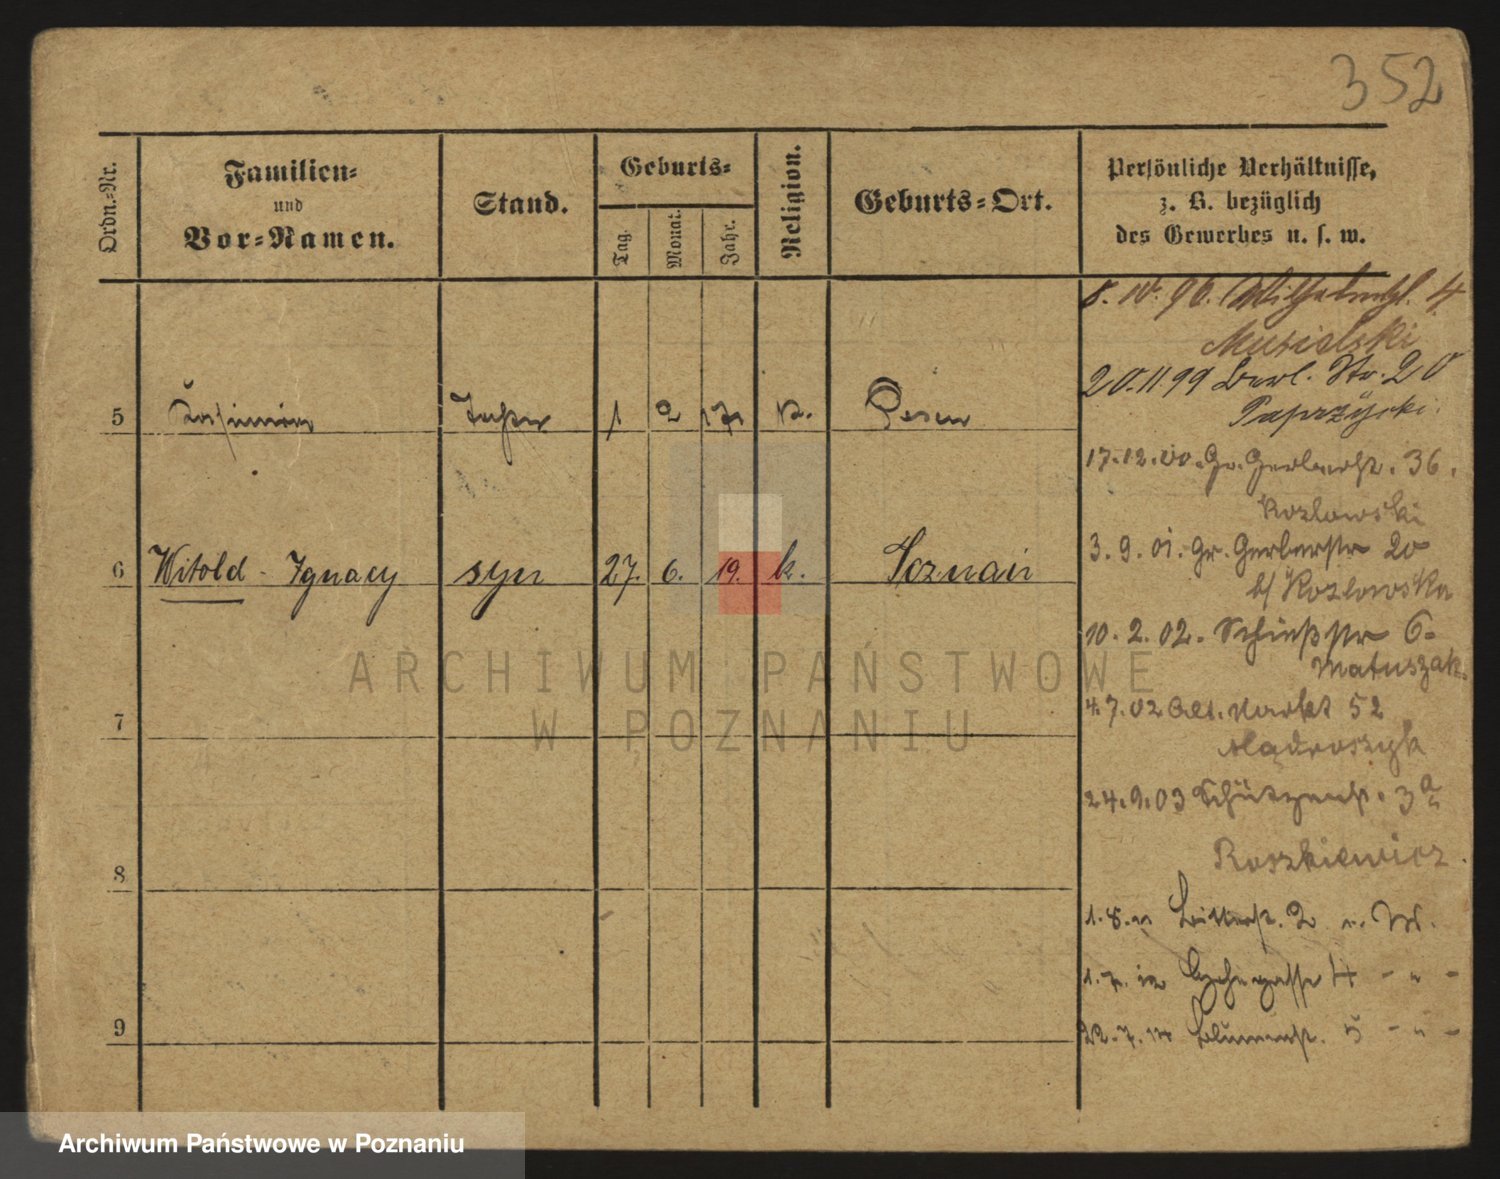 352
Ordn.-Nr.
Familien-
und
Vor-Namen.
Stand.
Geburts-
Tag.
Monat.
Jahr.
Religion.
Geburts-Ort.
Persönliche Verhältnisse,
z. B. bezüglich
des Gewerbes u. s. w.
8. 10. 96. Wilhelmspl. 4
Musielski
20.11.99 Berl. Str. 20
Paprzycki.
5 Kasimir 1 2 k. Posen
17.12.00. Gr. Gerberstr. 36.
Kozlowski
3. 9. 01. Gr. Gerberstr 20
b/ Kozlowska
6 Witold - Ignacy syn 27. 6. 19. k. Poznań
10. 2. 02. Schießstr 6.
Matuszak.
4.7.02 Alt. Markt 52
Mądroszyk
7
24.9.03 Schützenstr. 3a
Roszkiewicz.
8
1. 8. Ritterstr. 2
1. 7. 12 4 - " -
9
22. 7. 14 Blumenstr. 5 - " -
ARCHIWUM PAŃSTWOWE
W POZNANIU
Archiwum Państwowe w Poznaniu